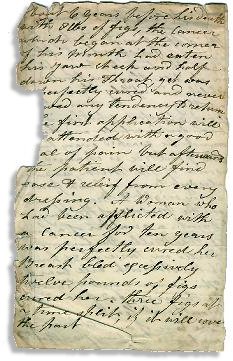 6 years before his death
with 8 lbs of figs, the Cancer
which began at the corner
of his Mouth had enten
his jaw cheek and half
down his Throat, yet was
perfectly cured and never
had any tendency to return
first application will
attended with a good
al of pain but afterwards
the patient will find
ease & relief from every
dressing. A Woman who
had been afflicted with
a Cancer for ten years
was perfectly cured her
Breast bled excessively
twelve pounds of figs
cured her. Three figs at
time split, if it will cover
the part